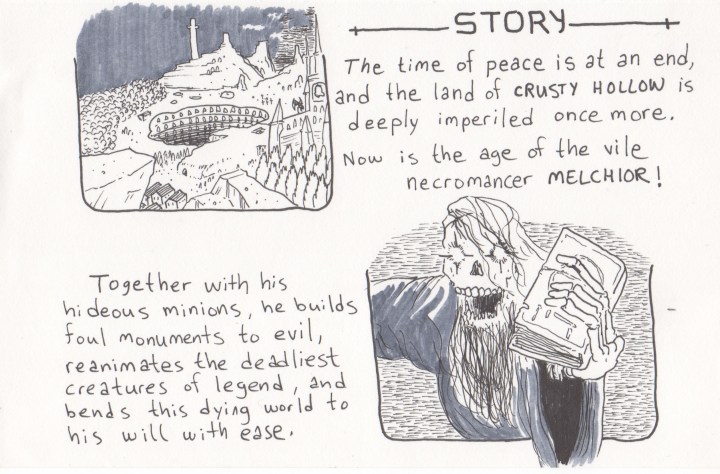 STORY
The time of peace is at an end,
and the land of CRUSTY HOLLOW is
deeply imperiled once more.
Now is the age of the vile
necromancer MELCHIOR!
Together with his
hideous minions, he builds
foul monuments to evil,
reanimates the deadliest
creatures of legend, and
bends this dying world to
his will with ease.